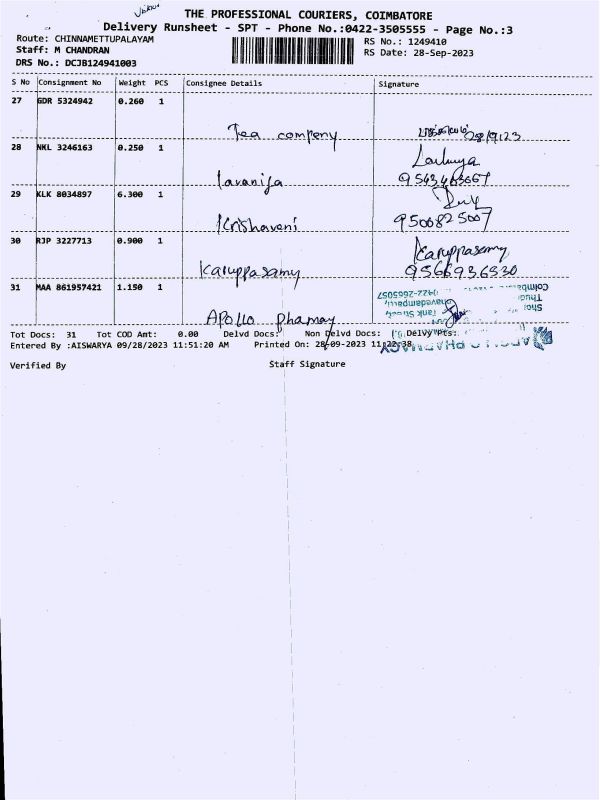 THE PROFESSIONAL COURIERS, COIMBATORE
Delivery Runsheet - SPT - Phone No.:0422-3505555 - Page No.:3
Route: CHINNAMETTUPALAYAM
RS No.: 1249410
Staff: M CHANDRAN
RS Date: 28-Sep-2023
DRS No.: DCJB124941003
S No Consignment No Weight PCS Consignee Details Signature
27 GDR 5324942 0.260 1
Tea company 28/9/23
28 NKL 3246163 0.250 1
lavanija
29 KLK 8034897 6.300 1
Krishaveni 9500825007
30 RJP 3227713 0.900 1 Karuppasamy
Karuppasamy 9566936530
31 MAA 861957421 1.150 1
Apollo phamay
Tot Docs: 31 Tot COD Amt: 0.00 Delvd Docs: Non Delvd Docs: Delvy Pts:
Entered By :AISWARYA 09/28/2023 11:51:20 AM Printed On: 28-09-2023 11:22:38
Verified By Staff Signature